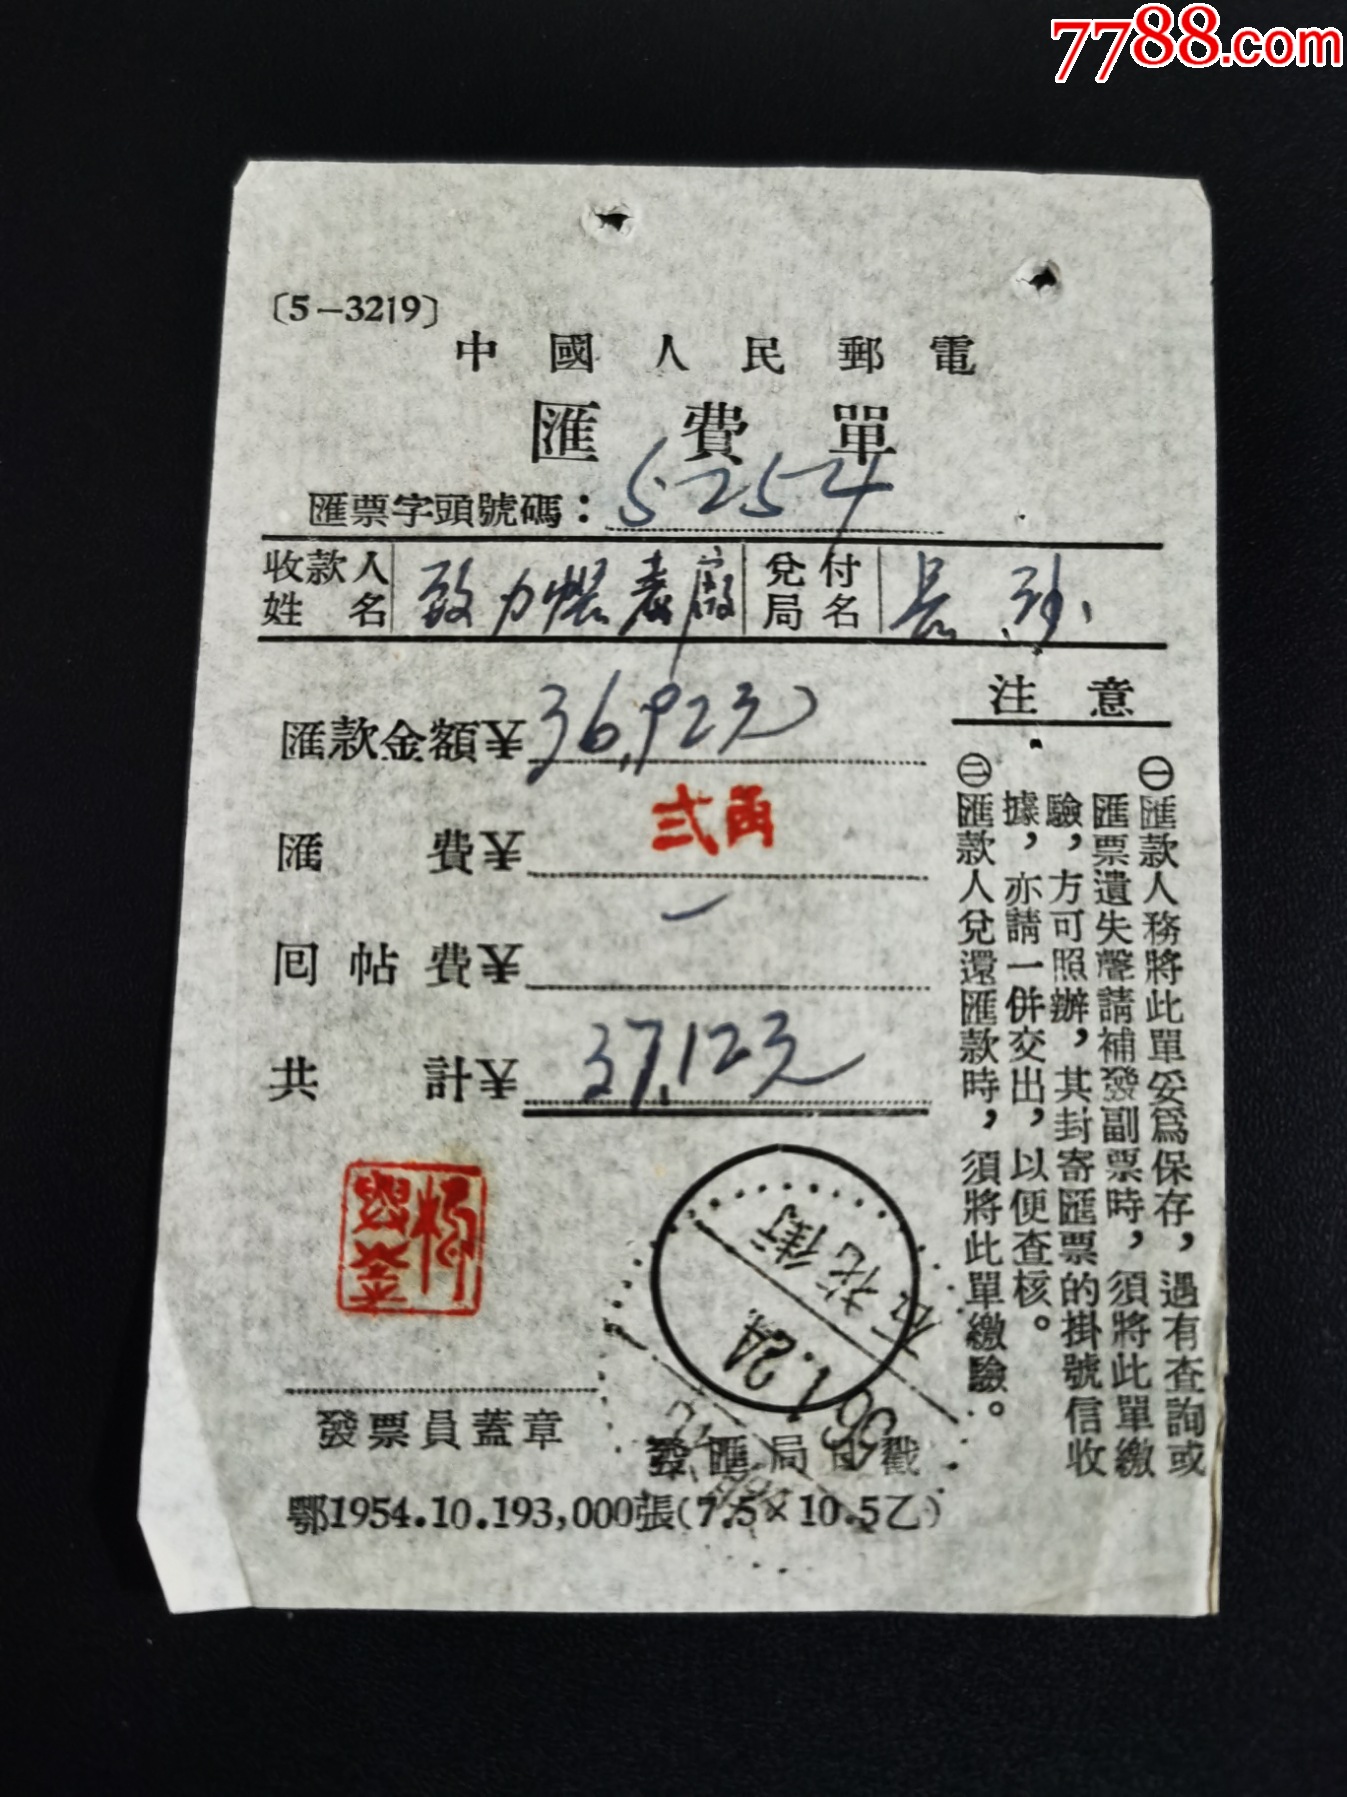 7788.com
〔5－3219〕
中國人民郵電
匯費單
匯票字頭號碼：5254
收款人姓名
廠
兌付局名
長沙
匯款金額¥36.92元
匯費¥貳角
回帖費¥—
共計¥37.12元
注意
㊀匯款人務將此單妥爲保存，遇有查詢或
匯票遺失聲請補發副票時，須將此單繳
驗，方可照辦，其封寄匯票的掛號信收
據，亦請一併交出，以便查核。
㊁匯款人兌還匯款時，須將此單繳驗。
發票員蓋章
發匯局日戳
石花街
1.24.
鄂1954.10.193,000張(7.5×10.5乙)